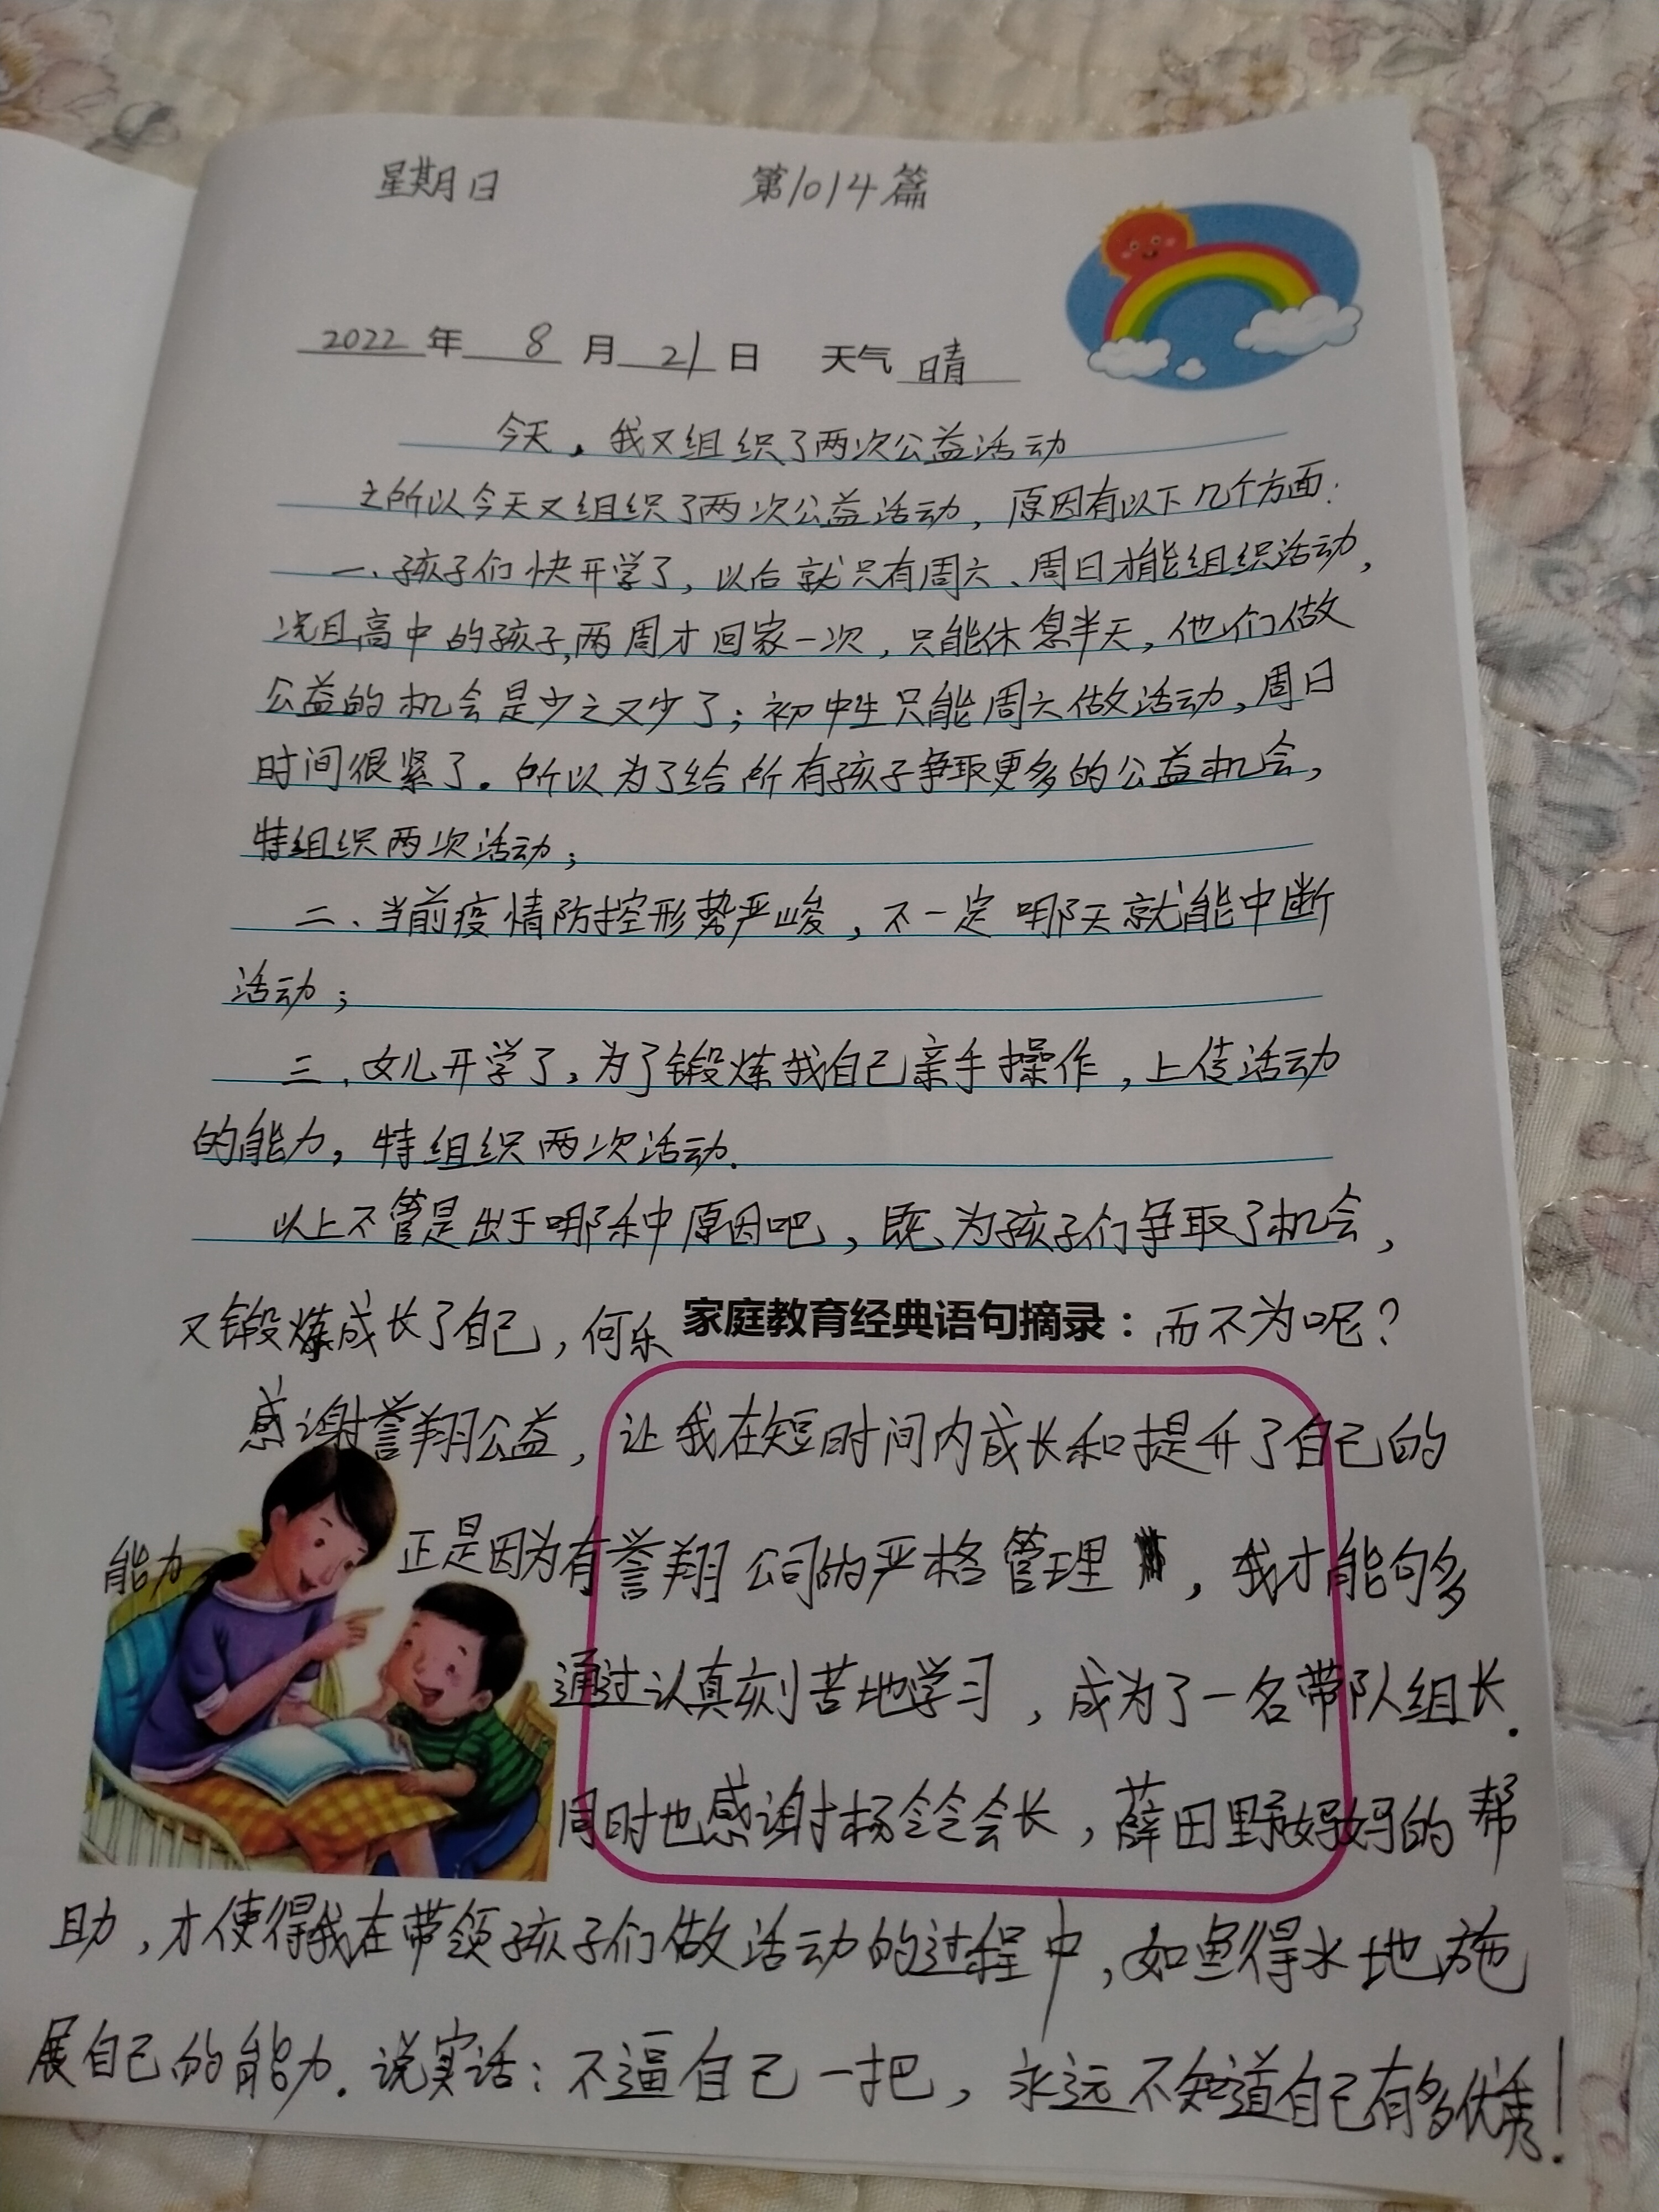 星期日 第1014篇
2022年 8月21日 天气 晴
今天，我又组织了两次公益活动
之所以今天又组织了两次公益活动，原因有以下几个方面：
一、孩子们快开学了，以后就只有周六、周日才能组织活动，
况且高中的孩子，两周才回家一次，只能休息半天，他们做
公益的机会是少之又少了；初中生只能周六做活动，周日
时间很紧了。所以为了给所有孩子争取更多的公益机会，
特组织两次活动；
二、当前疫情防控形势严峻，不一定哪天就能中断
活动；
三、女儿开学了，为了锻炼我自己亲手操作，上传活动
的能力，特组织两次活动.
以上不管是出于哪种原因吧，既为孩子们争取了机会，
又锻炼成长了自己，何乐 家庭教育经典语句摘录： 而不为呢？
感谢誉翔公益，让我在短时间内成长和提升了自己的
能力 正是因为有誉翔公司的严格管理，我才能够多
通过认真刻苦地学习，成为了一名带队组长.
同时也感谢杨令令会长，薛田野妈妈的帮
助，才使得我在带领孩子们做活动的过程中，如鱼得水地施
展自己的能力. 说实话：不逼自己一把，永远不知道自己有多优秀！